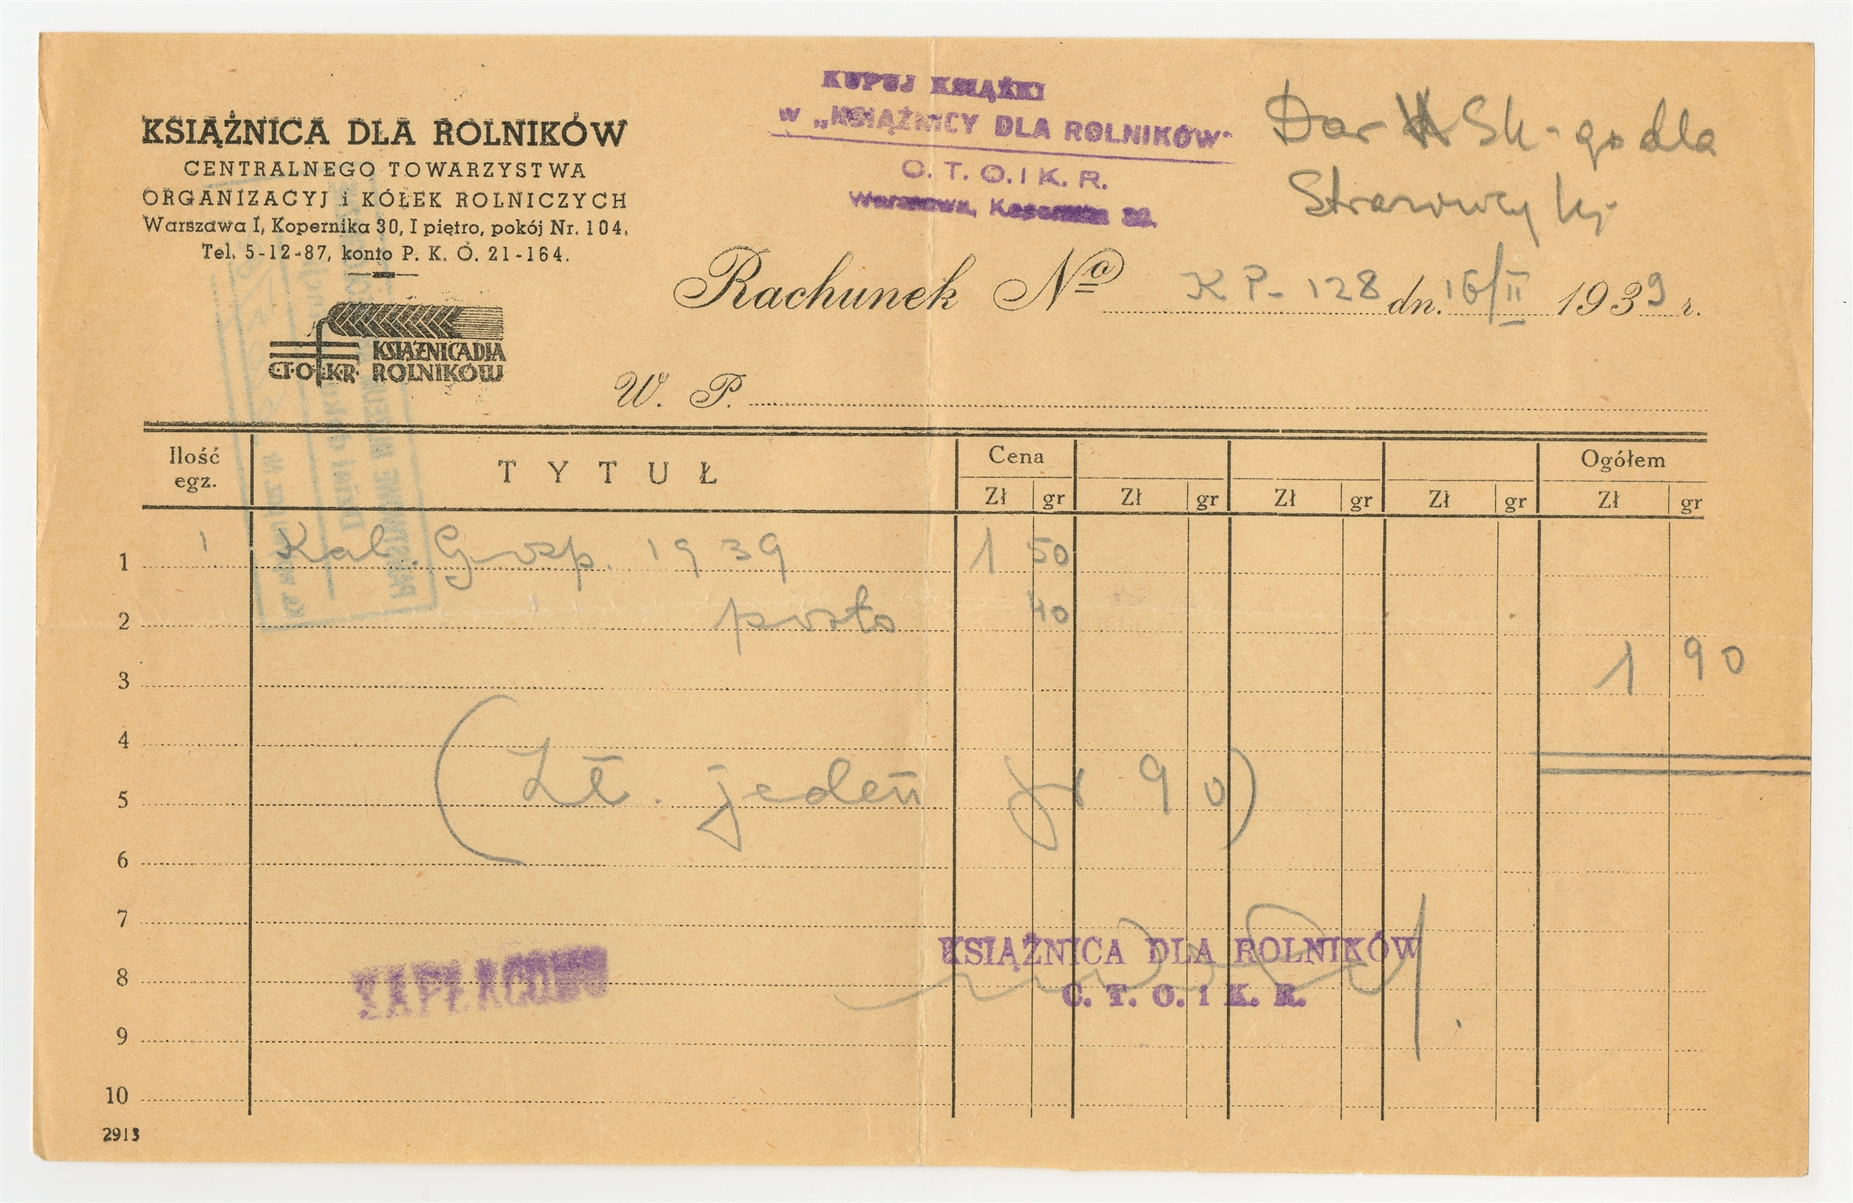 KSIĄŻNICA DLA ROLNIKÓW
CENTRALNEGO TOWARZYSTWA
ORGANIZACYJ i KÓŁEK ROLNICZYCH
Warszawa I, Kopernika 30, I piętro, pokój Nr. 104,
Tel. 5-12-87, konto P. K. O. 21-164.
C.T.O.I.K.R. KSIĄŻNICA DLA
ROLNIKÓW
KUPUJ KSIĄŻKI
w „KSIĄŻNICY DLA ROLNIKÓW"
C. T. O. I K. R.
Warszawa, Kopernika 30.
Dar Sk-go dla
Rachunek No KP-128 dn. 16/II 1939 r.
W. P.
Ilość egz. TYTUŁ Cena Ogółem
Zł gr Zł gr Zł gr Zł gr Zł gr
1 1 Kal. Gosp. 1939 1 50
2 porto 40
3 1 90
4
5 (Zł. jeden gr 90)
6
7
KSIĄŻNICA DLA ROLNIKÓW
8 ZAPŁACONO C. T. O. i K. R.
9
10
2913